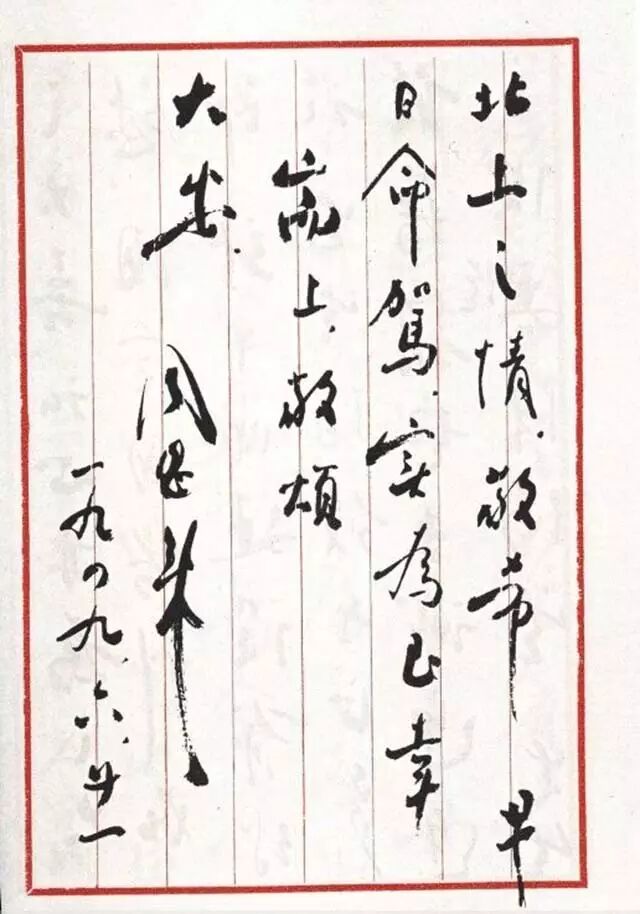 北上之情，敬希 早
日命駕，实为至幸
耑上，敬頌
大安．
周恩来
一九四九．六．廿一